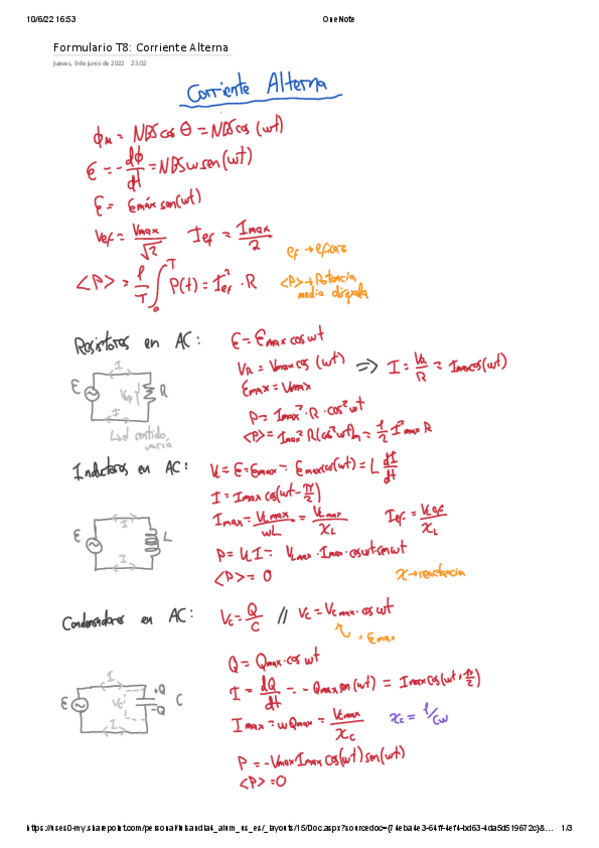 10/6/22 16:53
OneNote
Formulario T8: Corriente Alterna
jueves, 9 de junio de 2022 23:02
Corriente Alterna
ϕM = NBS cos θ = NBS cos (wt)
ε = - dϕ/dt = NBSw sen(wt)
ε = εmáx sen(wt)
Vef = Vmax/√2 Ief = Imax/2
ef → eficaz
<P> = 1/T ∫₀ᵀ P(t) = I²ef · R
<P> → Potencia
media disipada
Resistores en AC: ε = εmax cos wt
VR = Vmax cos (wt) ⇒ I = VR/R = Imax cos(wt)
εmax = Vmax
P = Imax² · R · cos² wt
<P> = Imax² R (cos² wt)m = 1/2 I²max R
ε I R I
el sentido
varía
Inductores en AC: VL = ε = εmax = εmax cos(wt) = L dI/dt
I = Imax cos(wt - π/2)
Imax = VLmax/wL = VLmax/XL Ief = VLef/XL
P = VL I = VLmax · Imax · cos wt sen wt
<P> = 0
χ → reactancia
ε I L I
Condensadores en AC: VC = Q/C // VC = VCmax · cos wt
= εmax
Q = Qmax · cos wt
I = dQ/dt = - Qmax sen(wt) = Imax cos(wt + π/2)
Imax = w Qmax = VCmax/XC χc = 1/Cw
P = - Vmax Imax cos(wt) sen(wt)
<P> = 0
ε I VC +Q -Q C I
1/3